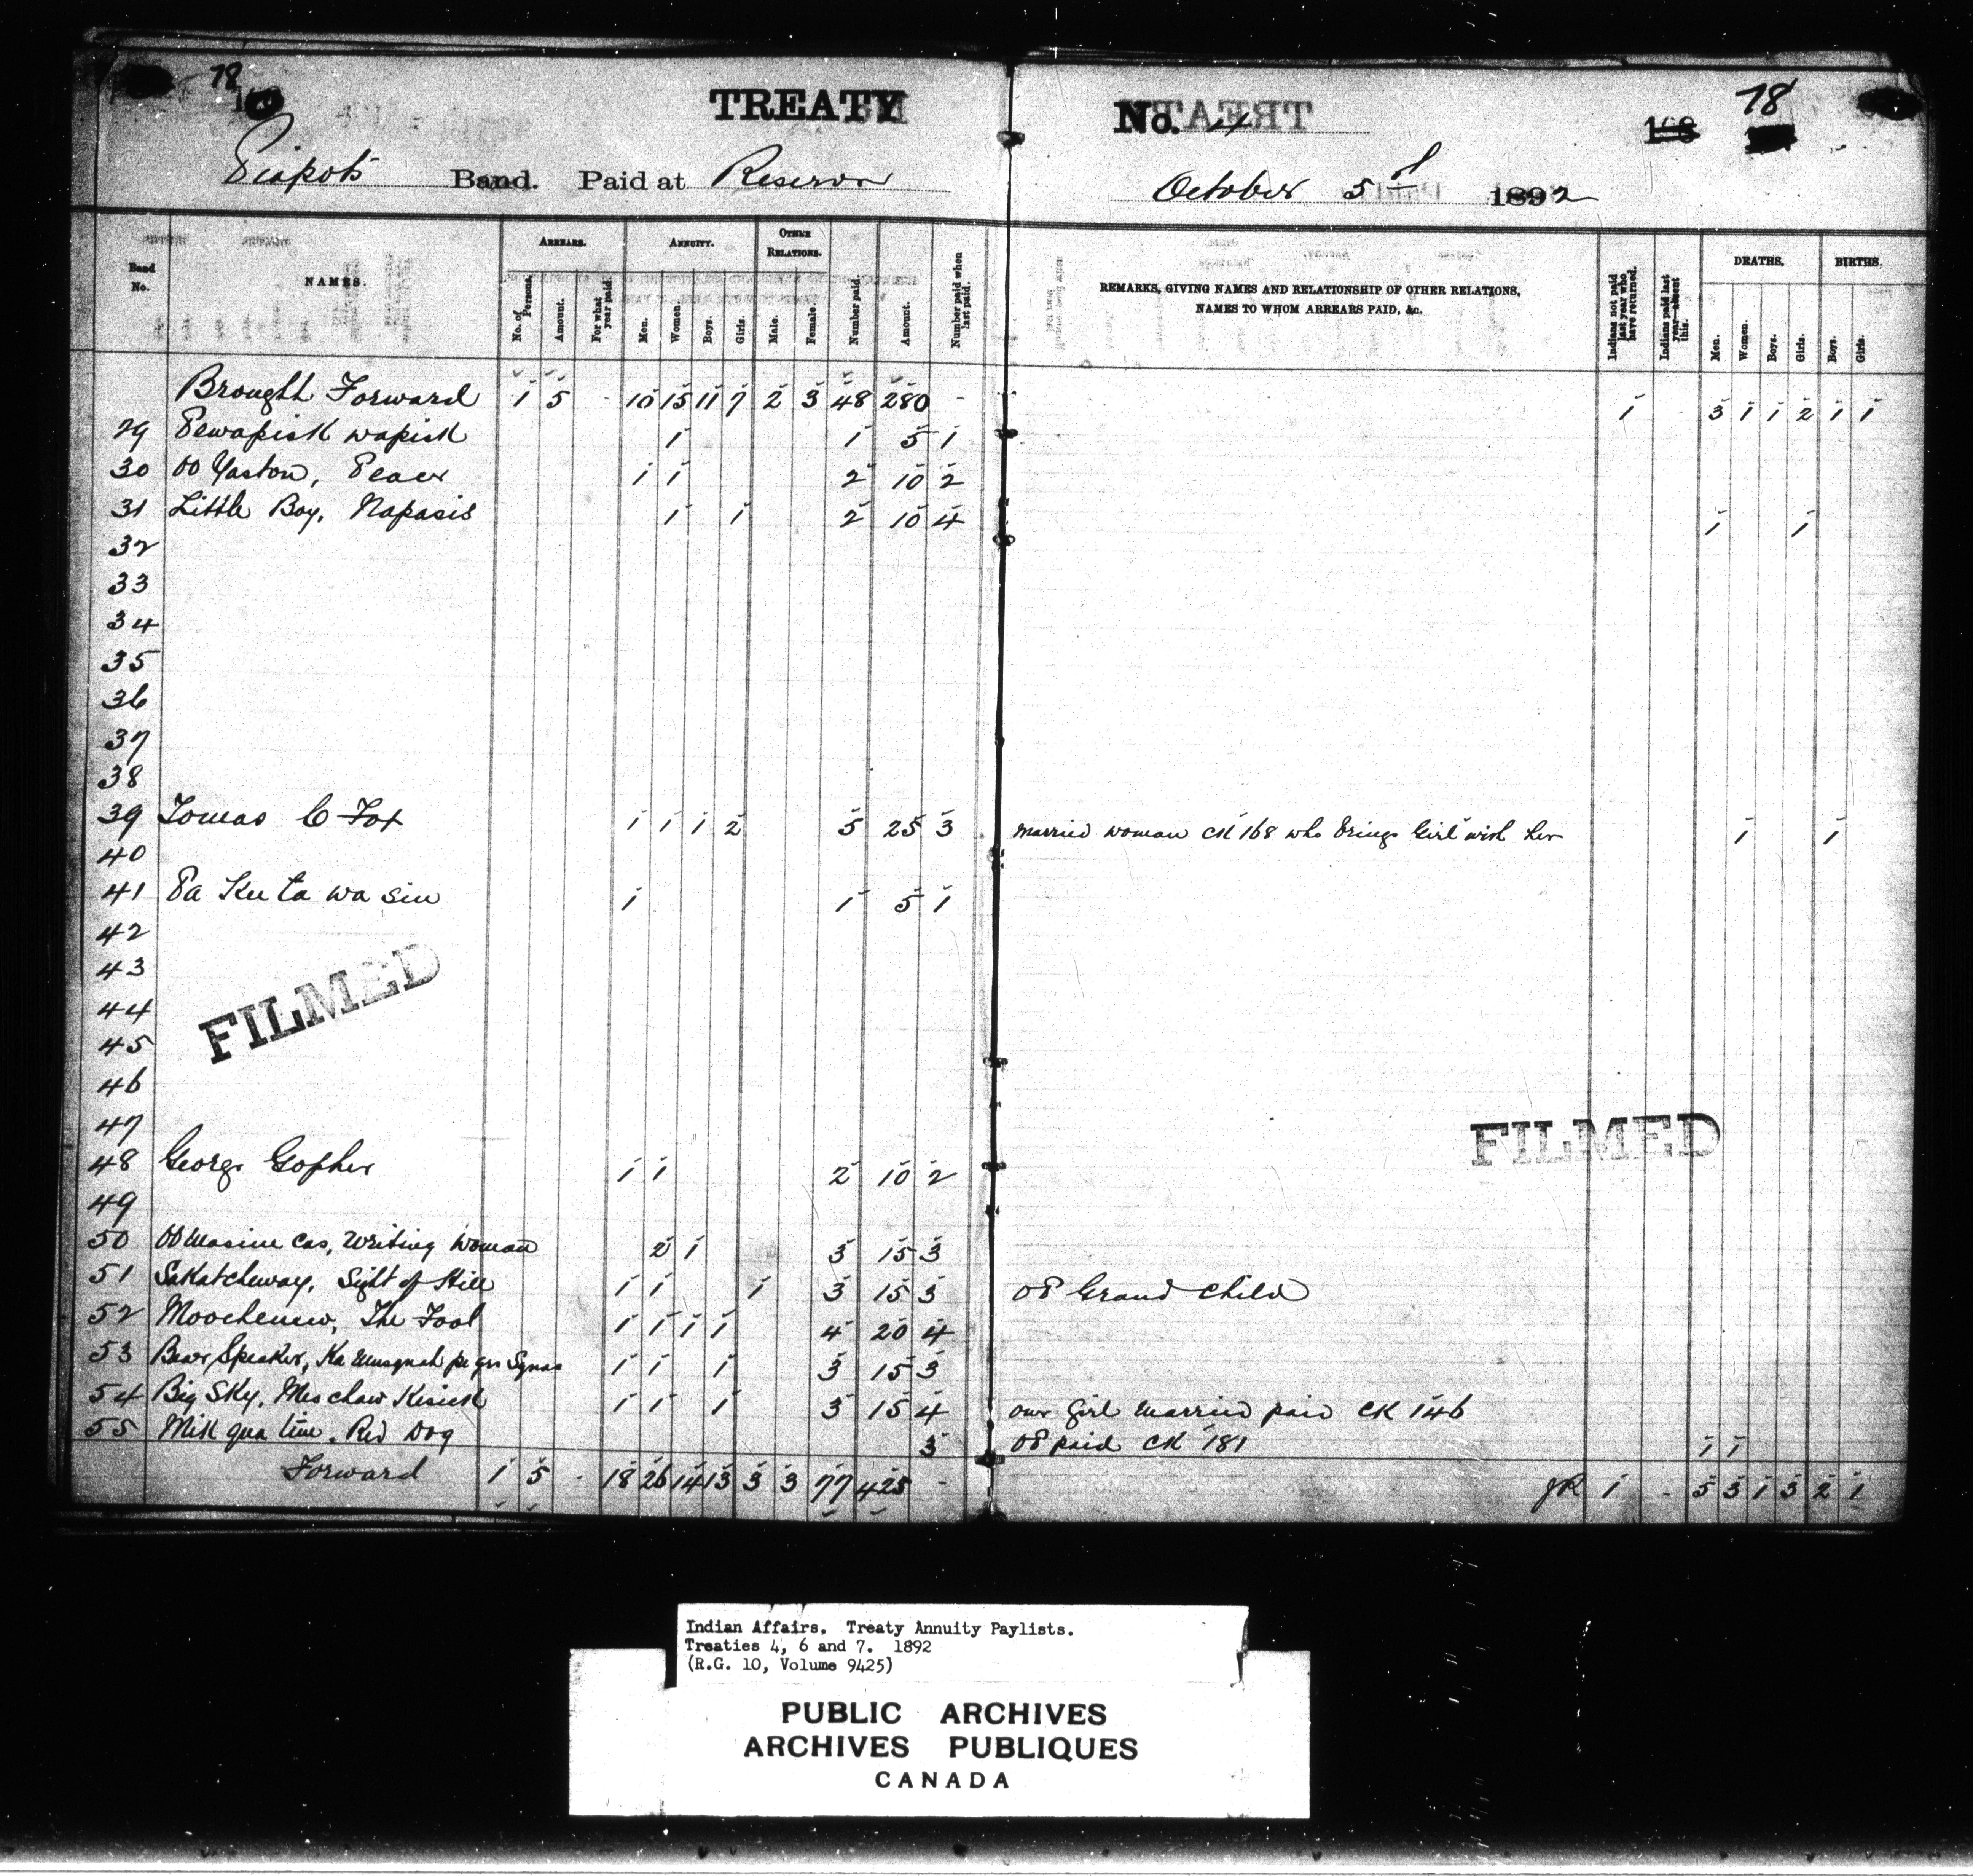 78
TREATY No. 4 78
168
Piapots Band. Paid at Reserve October 5th 1892
Band No. NAMES. ARREARS. ANNUITY. OTHER RELATIONS. Number paid. Amount. Number paid when last paid. REMARKS, GIVING NAMES AND RELATIONSHIP OF OTHER RELATIONS, NAMES TO WHOM ARREARS PAID, &c. Indians not paid last year who have returned. Indians paid last year—absent this. DEATHS. BIRTHS.
No. of Persons. Amount. For what year paid. Men. Women. Boys. Girls. Male. Female. Men. Women. Boys. Girls. Boys. Girls.
Brought Forward 1 5 - 10 15 11 7 2 3 48 280 - 1 3 1 1 2 1 1
29 Pewapisk wapisk 1 1 5 1
30 OO Yaston, Peace 1 1 2 10 2
31 Little Boy, Napasis 1 1 2 10 4 1 1
32
33
34
35
36
37
38
39 Tomas C Fox 1 1 1 2 5 25 3 married woman CK 168 who brings Girl with her 1 1
40
41 Pa Kee ta wa sin 1 1 5 1
42
43
44
45
46
47
48 George Gopher 1 1 2 10 2
49
50 OO Masine cas, Writing Woman 2 1 3 15 3
51 Saskatcheway, Sight of Hill 1 1 1 3 15 3 OP Grand Child
52 Moochenew, The Fool 1 1 1 1 4 20 4
53 Bear Speaker, Ka 1 1 1 3 15 3
54 Big Sky, Mes chaw Kesick 1 1 1 3 15 4 our girl married paid CK 146
55 Mik qua tim, Red Dog 3 OP paid CK 181 1 1
Forward 1 5 - 18 26 14 13 3 3 77 425 - JR 1 - 5 3 1 3 2 1
FILMED
FILMED
Indian Affairs. Treaty Annuity Paylists.
Treaties 4, 6 and 7. 1892
(R.G. 10, Volume 9425)
PUBLIC ARCHIVES
ARCHIVES PUBLIQUES
CANADA